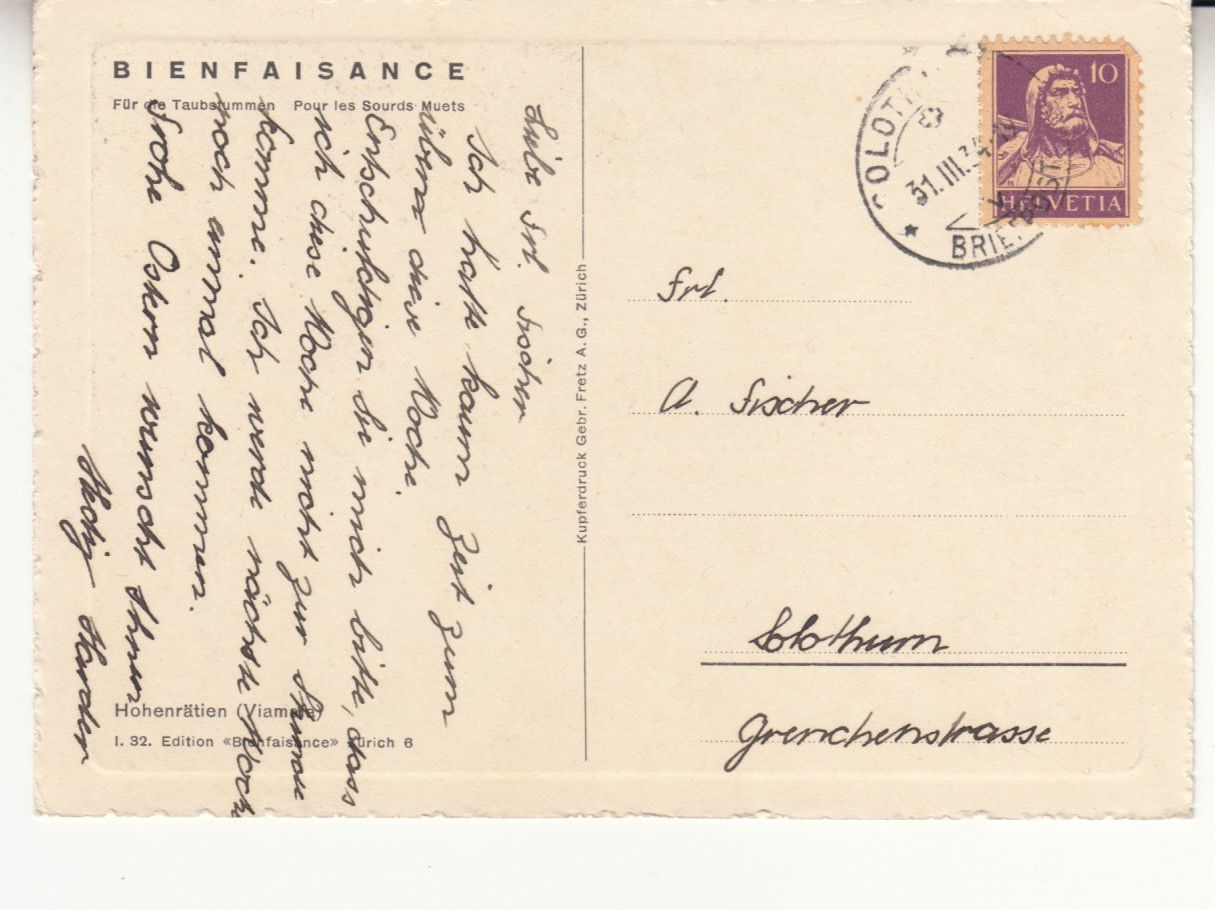 BIENFAISANCE
Für die Taubstummen Pour les Sourds-Muets
Liebe Frl. Fischer
Ich hatte kaum Zeit zum
üben diese Woche.
Entschuldigen Sie mich bitte, dass
ich diese Woche nicht zur Stunde
komme. Ich werde nächste Woche
noch einmal kommen.
Frohe Ostern wünscht Ihnen
Hedy Harder
Hohenrätien (Viamala)
I. 32. Edition «Bienfaisance» Zürich 6
Kupferdruck Gebr. Fretz A. G., Zürich
10
HELVETIA
SOLOTHURN
31.III.34
BRIEFPOST
Frl.
A. Fischer
Solothurn
Grenchenstrasse